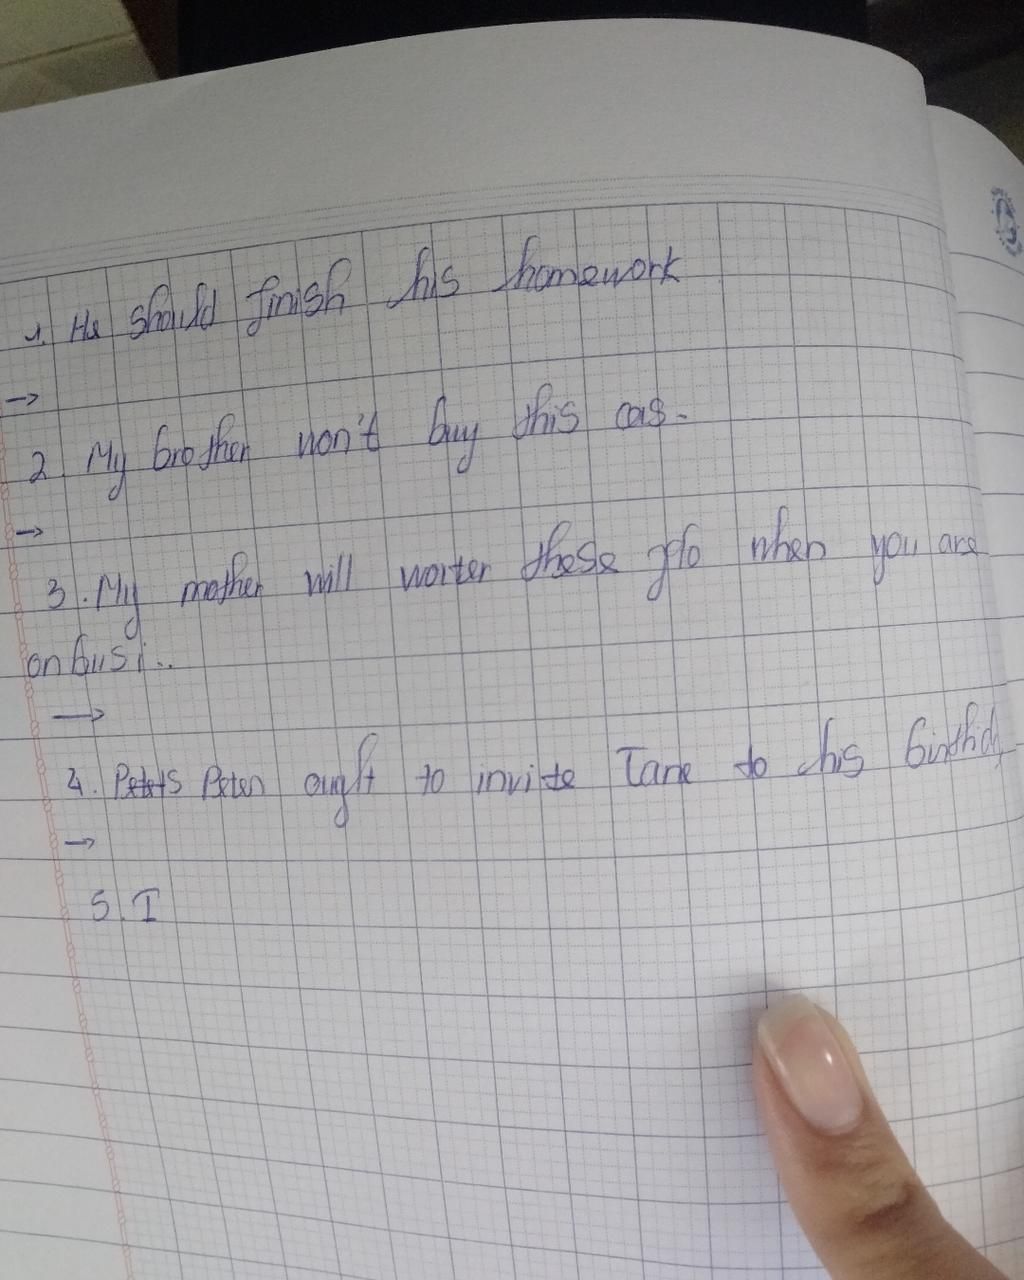 1. He should finish his homework
→
2. My brother won't buy this car.
→
3. My mother will water these when you are
on busi...
→
4. Peter ought to invite Jane to his birthd
→
5. I